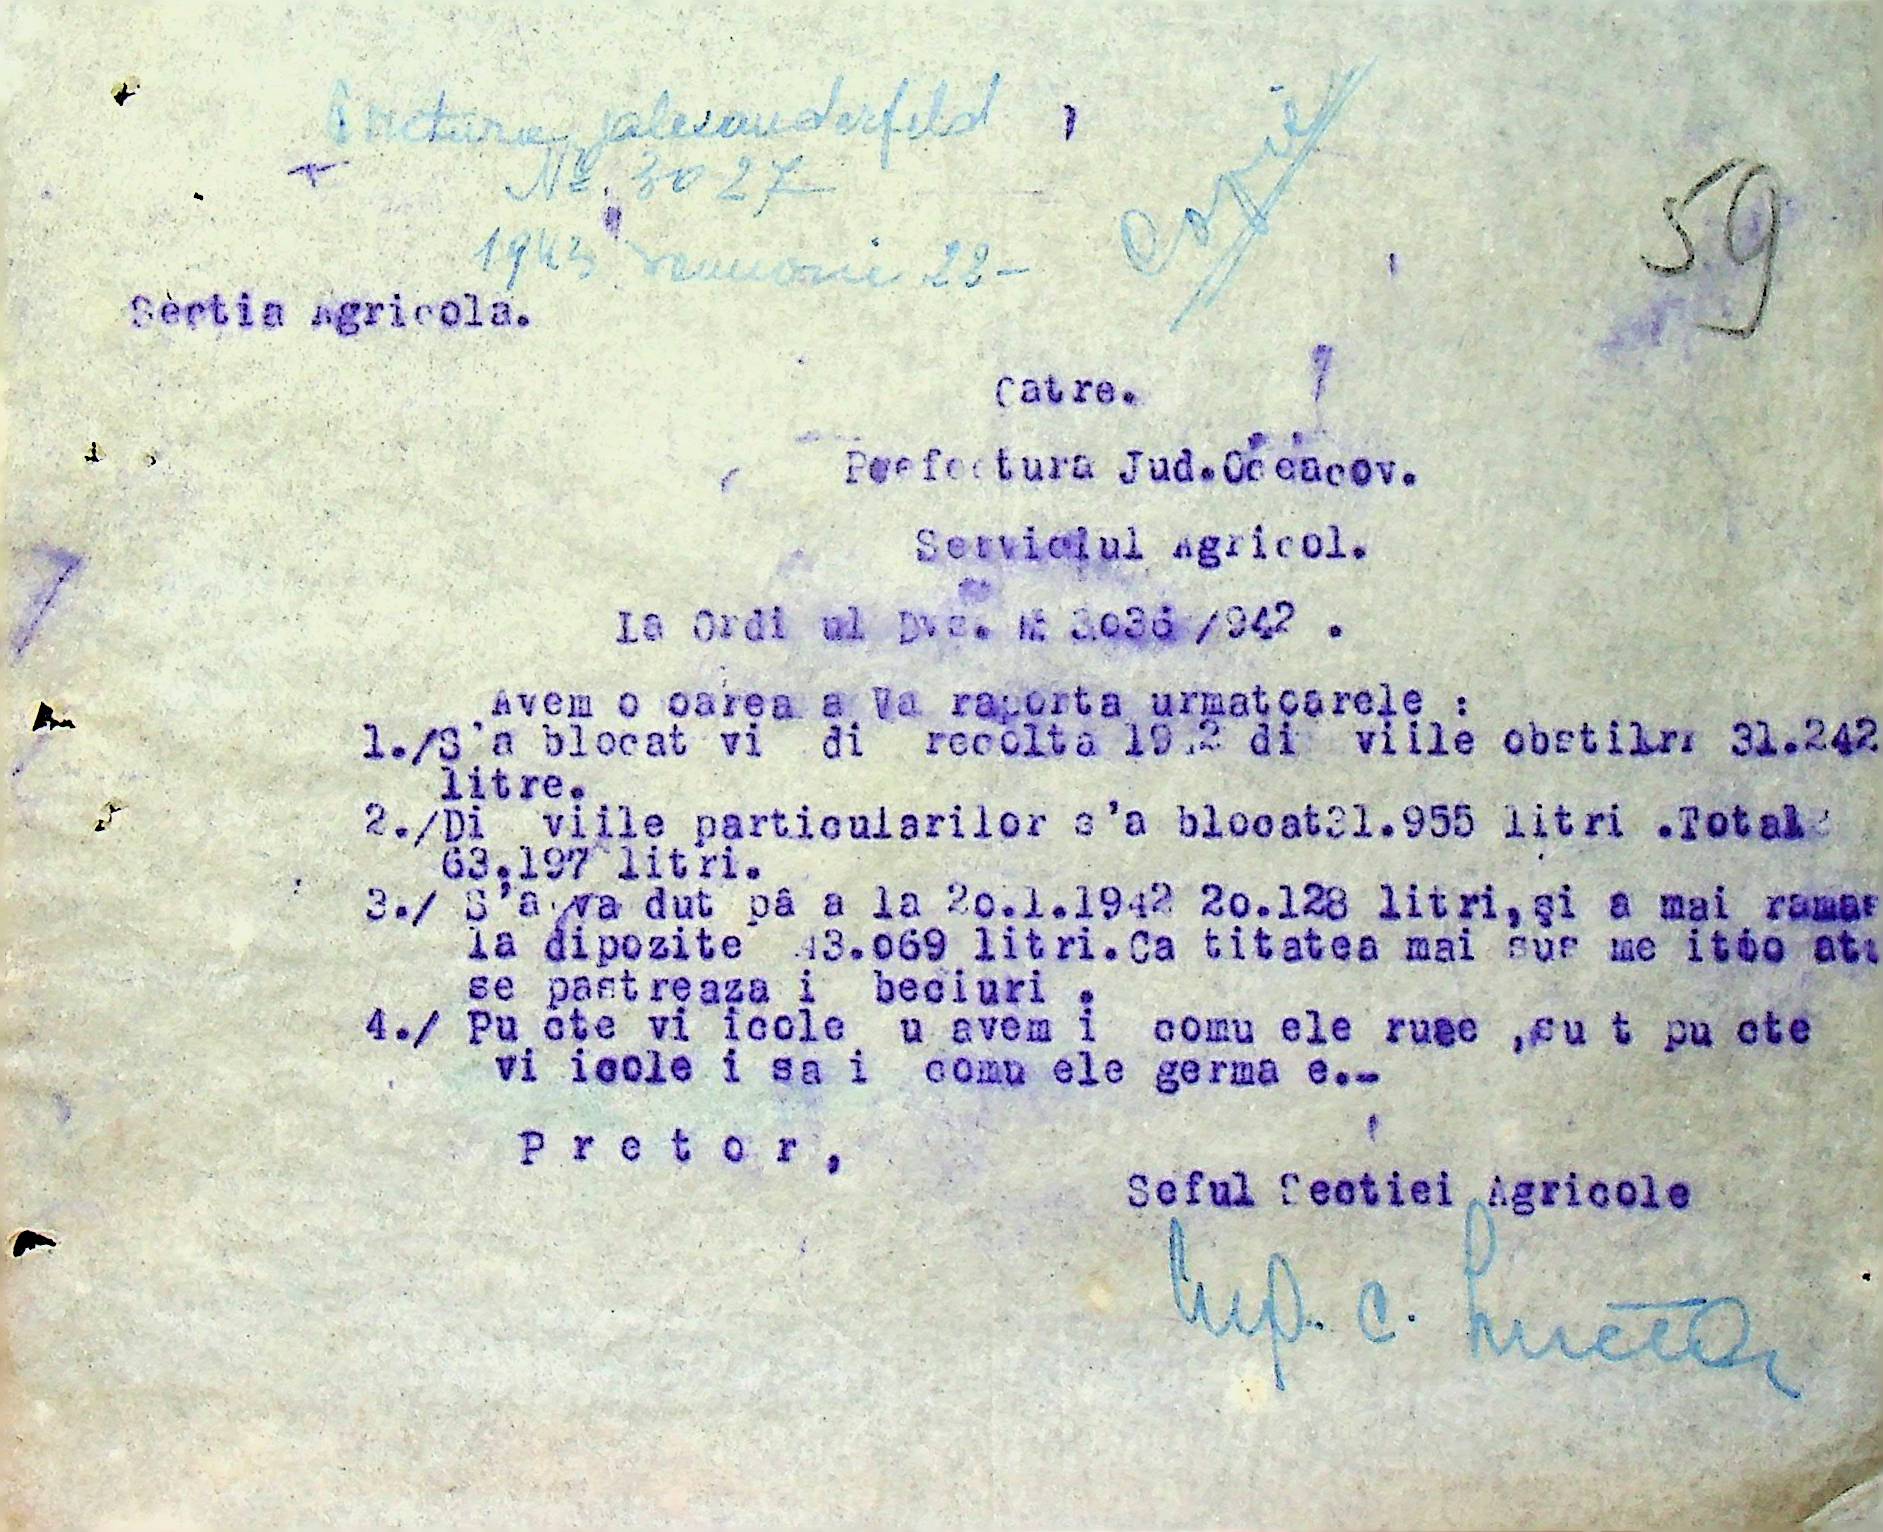 Pretura Alexanderfeld
№ 3027
1943 ianuarie 28-
Copie
59
Sectia Agricola.
Catre.
Prefectura Jud.Oceacov.
Serviciul Agricol.
La Ordi ul Dvs. № 3036/942 .
Avem o oarea a Va raporta urmatoarele :
1./S'a blocat vi di recolta 1942 di viile obstilr 31.242
litre.
2./Di viile particularilor s'a blocat31.955 litri .Total
63.197 litri.
3./ S'a va dut pâ a la 2o.1.1942 2o.128 litri,şi a mai ramas
la dipozite 43.o69 litri.Ca titatea mai sus me itio at
se pastreaza i beciuri .
4./ Pu cte vi icole u avem i comu ele ruse ,su t pu cte
vi icole i sa i comu ele germa e.-
P r e t o r ,
Seful Sectiei Agricole
C.